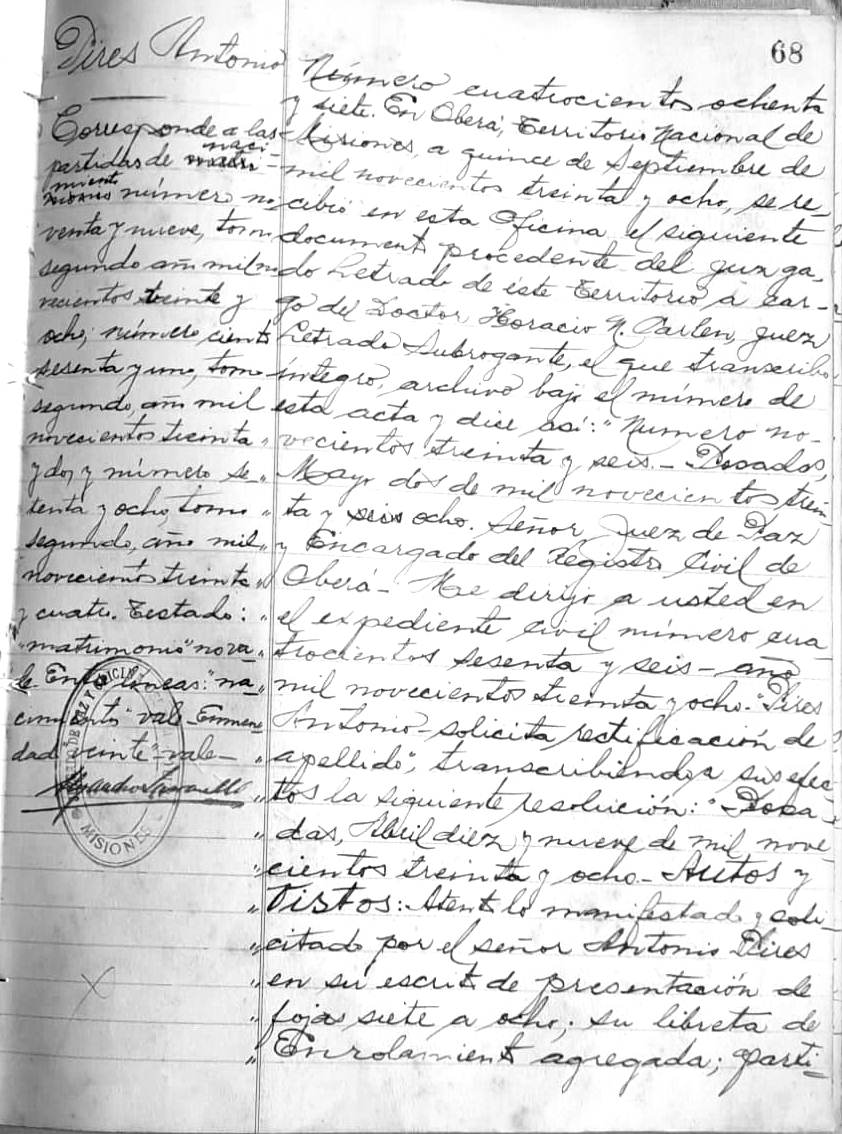 68
Pires Antonio
Corresponde a las
partidas de matri-
naci
monio número no
miento
venta y nueve, tomo
segundo año mil no
vecientos treinta y
ocho; número ciento
sesenta y uno, tomo
segundo, año mil
novecientos treinta
y dos y número se
tenta y ocho, tomo
segundo, año mil
novecientos treinta
y cuatro. Testado:
"matrimonio" no va-
le Entre líneas: "na-
cimiento" vale - Enmen
dado veinte - vale -
MISIONES
Número cuatrocientos ochenta
y siete. En Oberá, Territorio Nacional de
Misiones, a quince de Septiembre de
mil novecientos treinta y ocho, se re-
cibió en esta Oficina el siguiente
documento procedente del Juzga-
do Letrado de éste Territorio a car-
go del Doctor Horacio N. Carlen, Juez
Letrado Subrogante, el que transcribo
íntegro, archivo bajo el número de
esta acta y dice así: "Numero no-
vecientos treinta y seis. - Posadas,
Mayo dos de mil novecientos trein-
ta y seis ocho. Señor Juez de Paz
" y Encargado del Registro Civil de
" Oberá - Me dirijo a usted en
" el expediente civil número cua
" trocientos sesenta y seis - año
" mil novecientos treinta y ocho - "Pires
" Antonio - solicita rectificación de
" apellido", transcribiendo a sus efec-
" tos la siguiente resolución: "Posa-
" das, Abril diez y nueve de mil nove-
" cientos treinta y ocho - Autos y
" Vistos: Atento lo manifestado y soli-
" citado por el señor Antonio Pires
" en su escrito de presentación de
" fojas siete a ocho; su libreta de
" Enrolamiento agregada; parti-